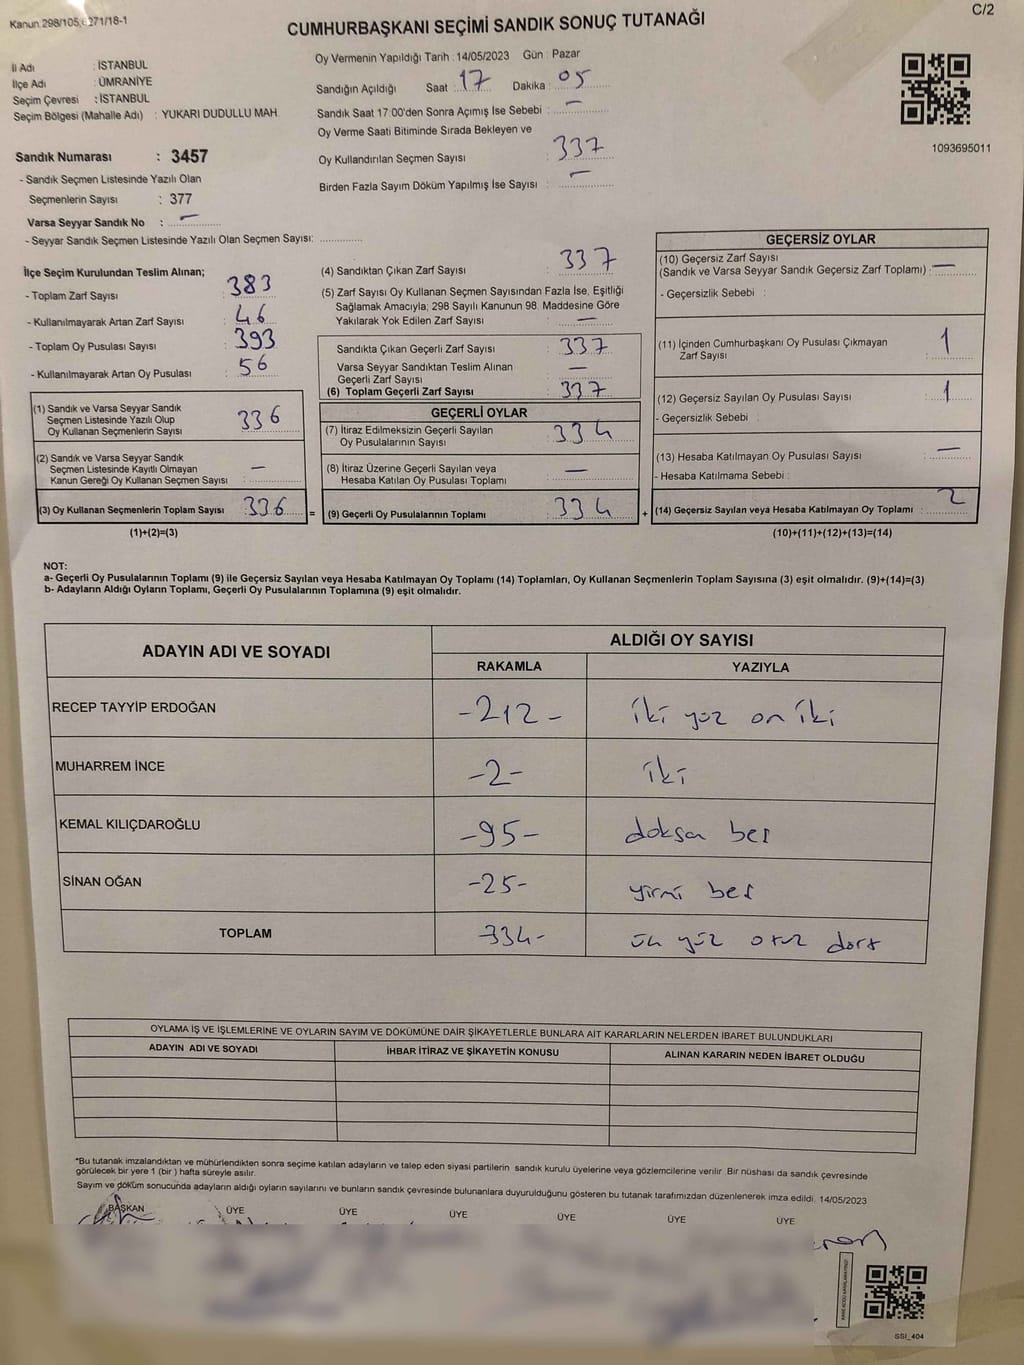 Kanun:298/105, 271/18-1
C/2
CUMHURBAŞKANI SEÇİMİ SANDIK SONUÇ TUTANAĞI
İl Adı : İSTANBUL
İlçe Adı : ÜMRANİYE
Seçim Çevresi : İSTANBUL
Seçim Bölgesi (Mahalle Adı) : YUKARI DUDULLU MAH.
Sandık Numarası : 3457
- Sandık Seçmen Listesinde Yazılı Olan
Seçmenlerin Sayısı : 377
Varsa Seyyar Sandık No : -
- Seyyar Sandık Seçmen Listesinde Yazılı Olan Seçmen Sayısı:
Oy Vermenin Yapıldığı Tarih : 14/05/2023 Gün : Pazar
Sandığın Açıldığı Saat : 17 Dakika : 05
Sandık Saat 17:00'den Sonra Açımış İse Sebebi : -
Oy Verme Saati Bitiminde Sırada Bekleyen ve
Oy Kullandırılan Seçmen Sayısı : 337
Birden Fazla Sayım Döküm Yapılmış İse Sayısı : -
1093695011
İlçe Seçim Kurulundan Teslim Alınan;
- Toplam Zarf Sayısı : 383
- Kullanılmayarak Artan Zarf Sayısı : 46
- Toplam Oy Pusulası Sayısı : 393
- Kullanılmayarak Artan Oy Pusulası : 56
(1) Sandık ve Varsa Seyyar Sandık
Seçmen Listesinde Yazılı Olup
Oy Kullanan Seçmenlerin Sayısı : 336
(2) Sandık ve Varsa Seyyar Sandık
Seçmen Listesinde Kayıtlı Olmayan
Kanun Gereği Oy Kullanan Seçmen Sayısı : -
(3) Oy Kullanan Seçmenlerin Toplam Sayısı : 336
(1)+(2)=(3)
(4) Sandıktan Çıkan Zarf Sayısı : 337
(5) Zarf Sayısı Oy Kullanan Seçmen Sayısından Fazla İse, Eşitliği
Sağlamak Amacıyla; 298 Sayılı Kanunun 98. Maddesine Göre
Yakılarak Yok Edilen Zarf Sayısı : -
Sandıkta Çıkan Geçerli Zarf Sayısı : 337
Varsa Seyyar Sandıktan Teslim Alınan
Geçerli Zarf Sayısı : -
(6) Toplam Geçerli Zarf Sayısı : 337
GEÇERLİ OYLAR
(7) İtiraz Edilmeksizin Geçerli Sayılan
Oy Pusulalarının Sayısı : 334
(8) İtiraz Üzerine Geçerli Sayılan veya
Hesaba Katılan Oy Pusulası Toplamı : -
= (9) Geçerli Oy Pusulalarının Toplamı : 334
GEÇERSİZ OYLAR
(10) Geçersiz Zarf Sayısı
(Sandık ve Varsa Seyyar Sandık Geçersiz Zarf Toplamı) : -
- Geçersizlik Sebebi :
(11) İçinden Cumhurbaşkanı Oy Pusulası Çıkmayan
Zarf Sayısı : 1
(12) Geçersiz Sayılan Oy Pusulası Sayısı : 1
- Geçersizlik Sebebi :
(13) Hesaba Katılmayan Oy Pusulası Sayısı : -
- Hesaba Katılmama Sebebi :
+ (14) Geçersiz Sayılan veya Hesaba Katılmayan Oy Toplamı : 2
(10)+(11)+(12)+(13)=(14)
NOT:
a- Geçerli Oy Pusulalarının Toplamı (9) ile Geçersiz Sayılan veya Hesaba Katılmayan Oy Toplamı (14) Toplamları, Oy Kullanan Seçmenlerin Toplam Sayısına (3) eşit olmalıdır. (9)+(14)=(3)
b- Adayların Aldığı Oyların Toplamı, Geçerli Oy Pusulalarının Toplamına (9) eşit olmalıdır.
ADAYIN ADI VE SOYADI ALDIĞI OY SAYISI
RAKAMLA YAZIYLA
RECEP TAYYİP ERDOĞAN -212- iki yüz on iki
MUHARREM İNCE -2- iki
KEMAL KILIÇDAROĞLU -95- doksa beş
SİNAN OĞAN -25- yirmi beş
TOPLAM -334- üç yüz otuz dört
OYLAMA İŞ VE İŞLEMLERİNE VE OYLARIN SAYIM VE DÖKÜMÜNE DAİR ŞİKAYETLERLE BUNLARA AİT KARARLARIN NELERDEN İBARET BULUNDUKLARI
ADAYIN ADI VE SOYADI İHBAR İTİRAZ VE ŞİKAYETİN KONUSU ALINAN KARARIN NEDEN İBARET OLDUĞU
*Bu tutanak imzalandıktan ve mühürlendikten sonra seçime katılan adayların ve talep eden siyasi partilerin sandık kurulu üyelerine veya gözlemcilerine verilir. Bir nüshası da sandık çevresinde
görülecek bir yere 1 (bir ) hafta süreyle asılır.
Sayım ve döküm sonucunda adayların aldığı oyların sayılarını ve bunların sandık çevresinde bulunanlara duyurulduğunu gösteren bu tutanak tarafımızdan düzenlenerek imza edildi. 14/05/2023
BAŞKAN ÜYE ÜYE ÜYE ÜYE ÜYE ÜYE
SSI_404